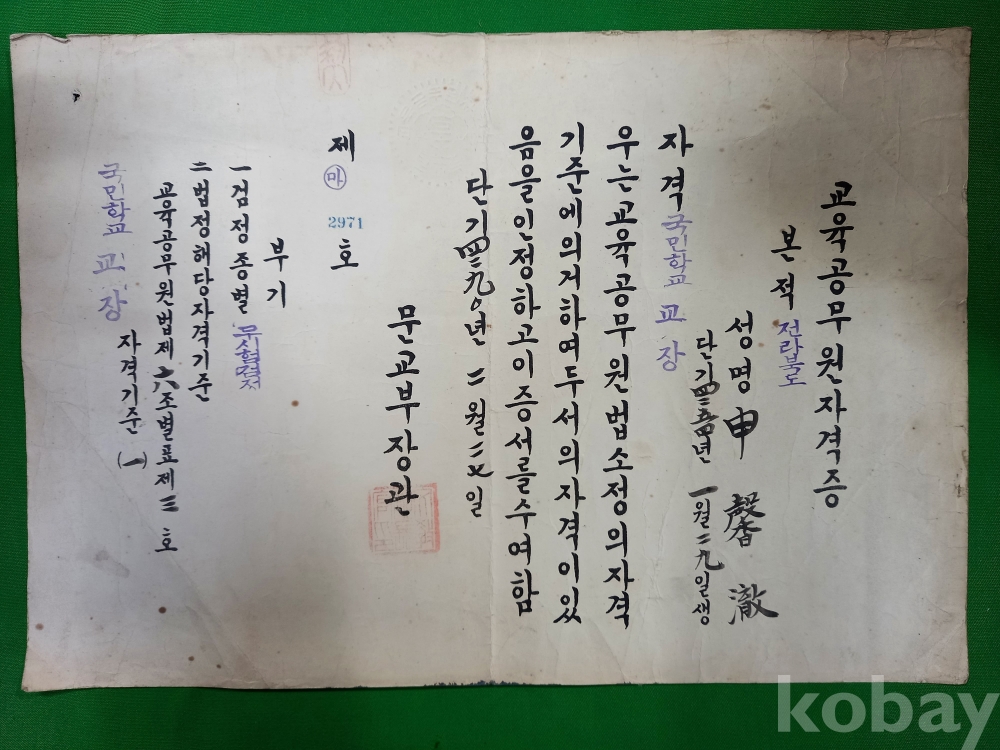 교육공무원자격증
본적 전라북도
성명 申 馨 澈
단기四二五四년 一월二九일생
자격 국민학교 교장
우는교육공무원법소정의자격
기준에의거하여두서의자격이있
음을인정하고이증서를수여함
단기四二九〇년 二월二七일
문교부장관
제 마 2971 호
부기
一 검정종별 무시험검정
二 법정해당자격기준
교육공무원법제六조별표제三호
국민학교 교장 자격기준 (一)
kobay